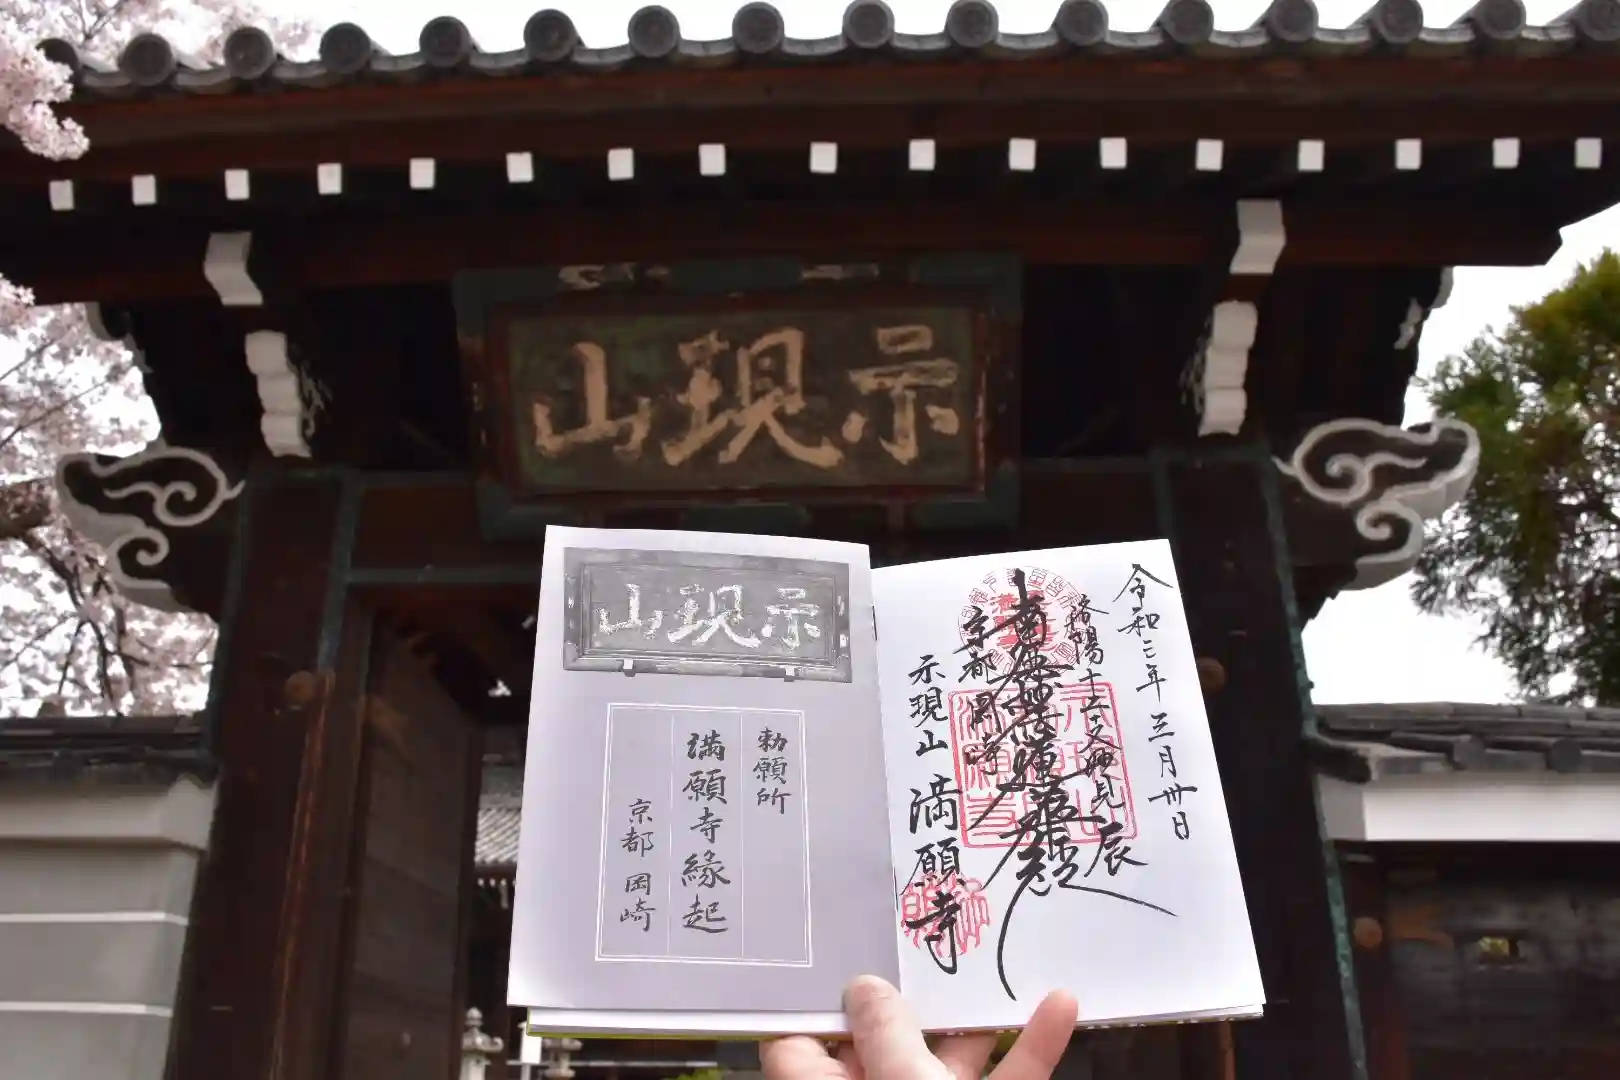 示現山
示現山
勅願所
満願寺縁起
京都 岡崎
令和二年 三月 卅日
洛陽十二支妙見 辰
南無妙法蓮華経
京都岡崎
示現山 満願寺